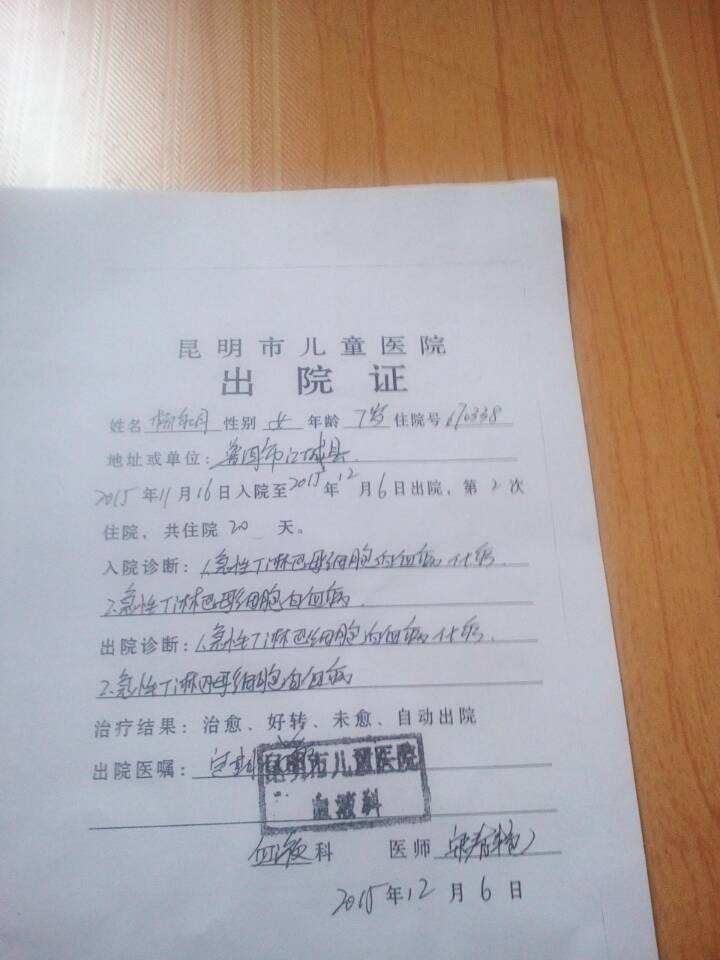 昆明市儿童医院
出院证
姓名 性别 女 年龄 7岁 住院号 170338
地址或单位: 普洱市江城县.
2015年11月16日入院至2015年12月6日出院, 第2次
住院, 共住院20天。
入院诊断: 1.急性T淋巴母细胞白血病化疗.
2.急性T淋巴母细胞白血病
出院诊断: 1.急性T淋巴细胞白血病化疗.
2.急性T淋巴母细胞白血病
治疗结果: 治愈、好转、未愈、自动出院
出院医嘱: 定期
昆明市儿童医院
血液科
血液科 医师
2015年12月6日